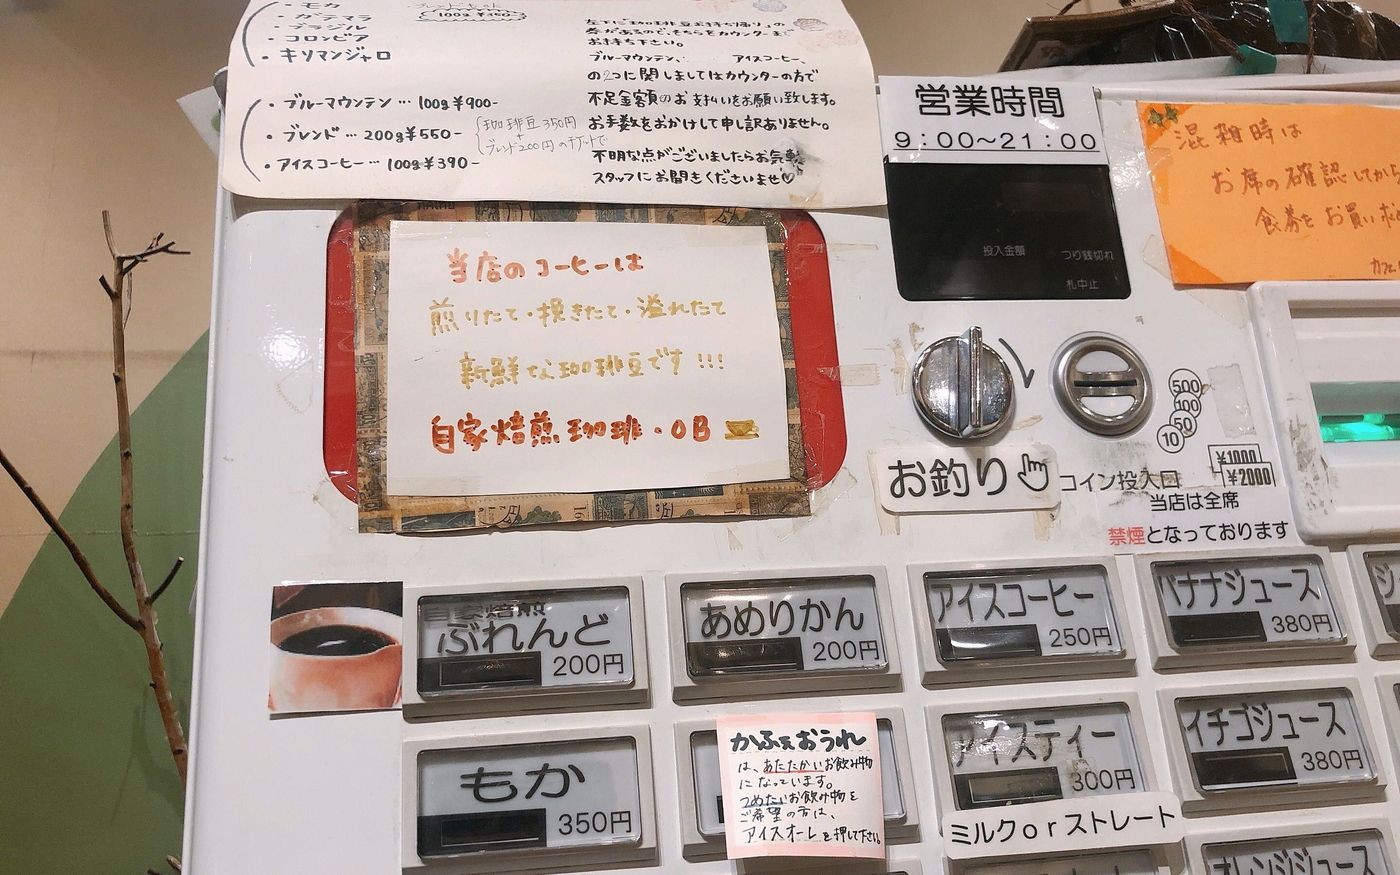 ・モカ
・ガテマラ
・ブラジル
・コロンビア
・キリマンジャロ
100g ¥350-
・ブルーマウンテン… 100g¥900-
・ブレンド… 200g¥550-
・アイスコーヒー… 100g¥390-
珈琲豆350円
+
ブレンド200円のチケットで
左下に「珈琲豆お持ち帰り」の
券があるので、そちらをカウンターまで
お持ち下さい。
ブルーマウンテン、 アイスコーヒー、
の2つに関しましてはカウンターの方で
不足金額のお支払いをお願い致します。
お手数をおかけして申し訳ありません。
不明な点がございましたらお気軽に
スタッフにお聞きくださいませ♡
営業時間
9:00～21:00
投入金額
つり銭切れ
札中止
混雑時は
お席の確認してから
食券をお買い
当店のコーヒーは
煎りたて・挽きたて・溢れたて
新鮮な珈琲豆です!!!
自家焙煎珈琲・OB
お釣り
コイン投入口
500
100
50
10
¥1000
¥2000
当店は全席
禁煙となっております
自家焙煎
ぶれんど
200円
あめりかん
200円
アイスコーヒー
250円
バナナジュース
380円
もか
350円
かふぇおうれ
は、あたたかいお飲み物
になっています。
つめたいお飲み物を
ご希望の方は、
アイスオーレを押して下さい。
アイスティー
300円
ミルクorストレート
イチゴジュース
380円
オレンジジュース